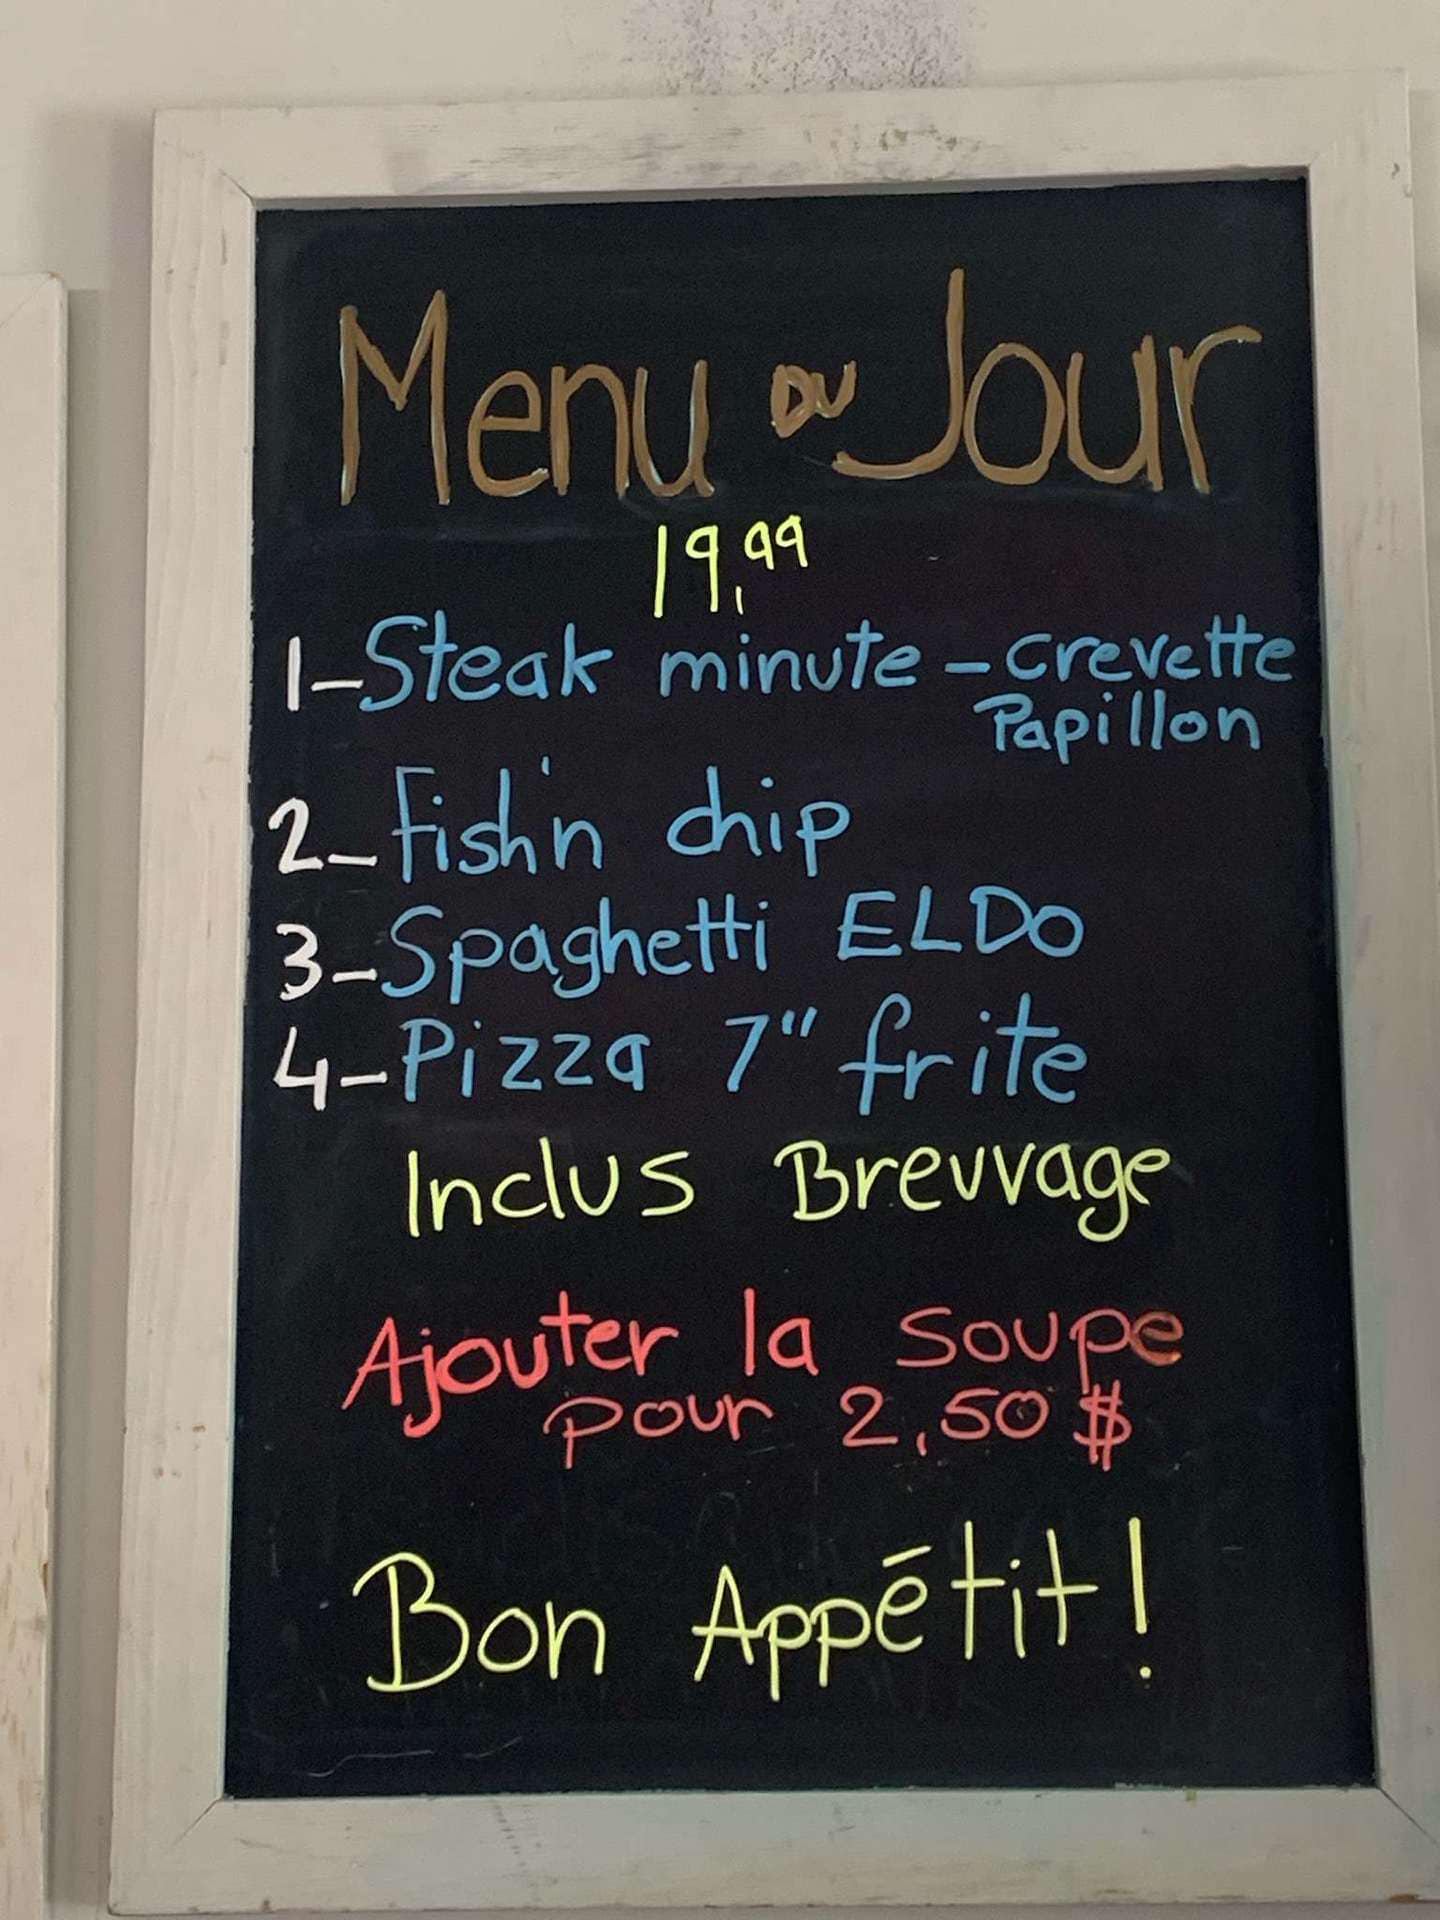 Menu DU Jour
19,99
1-Steak minute - crevette
Papillon
2-Fish'n chip
3-Spaghetti ELDO
4-Pizza 7" frite
Inclus Brevvage
Ajouter la soupe
pour 2,50$
Bon Appétit!